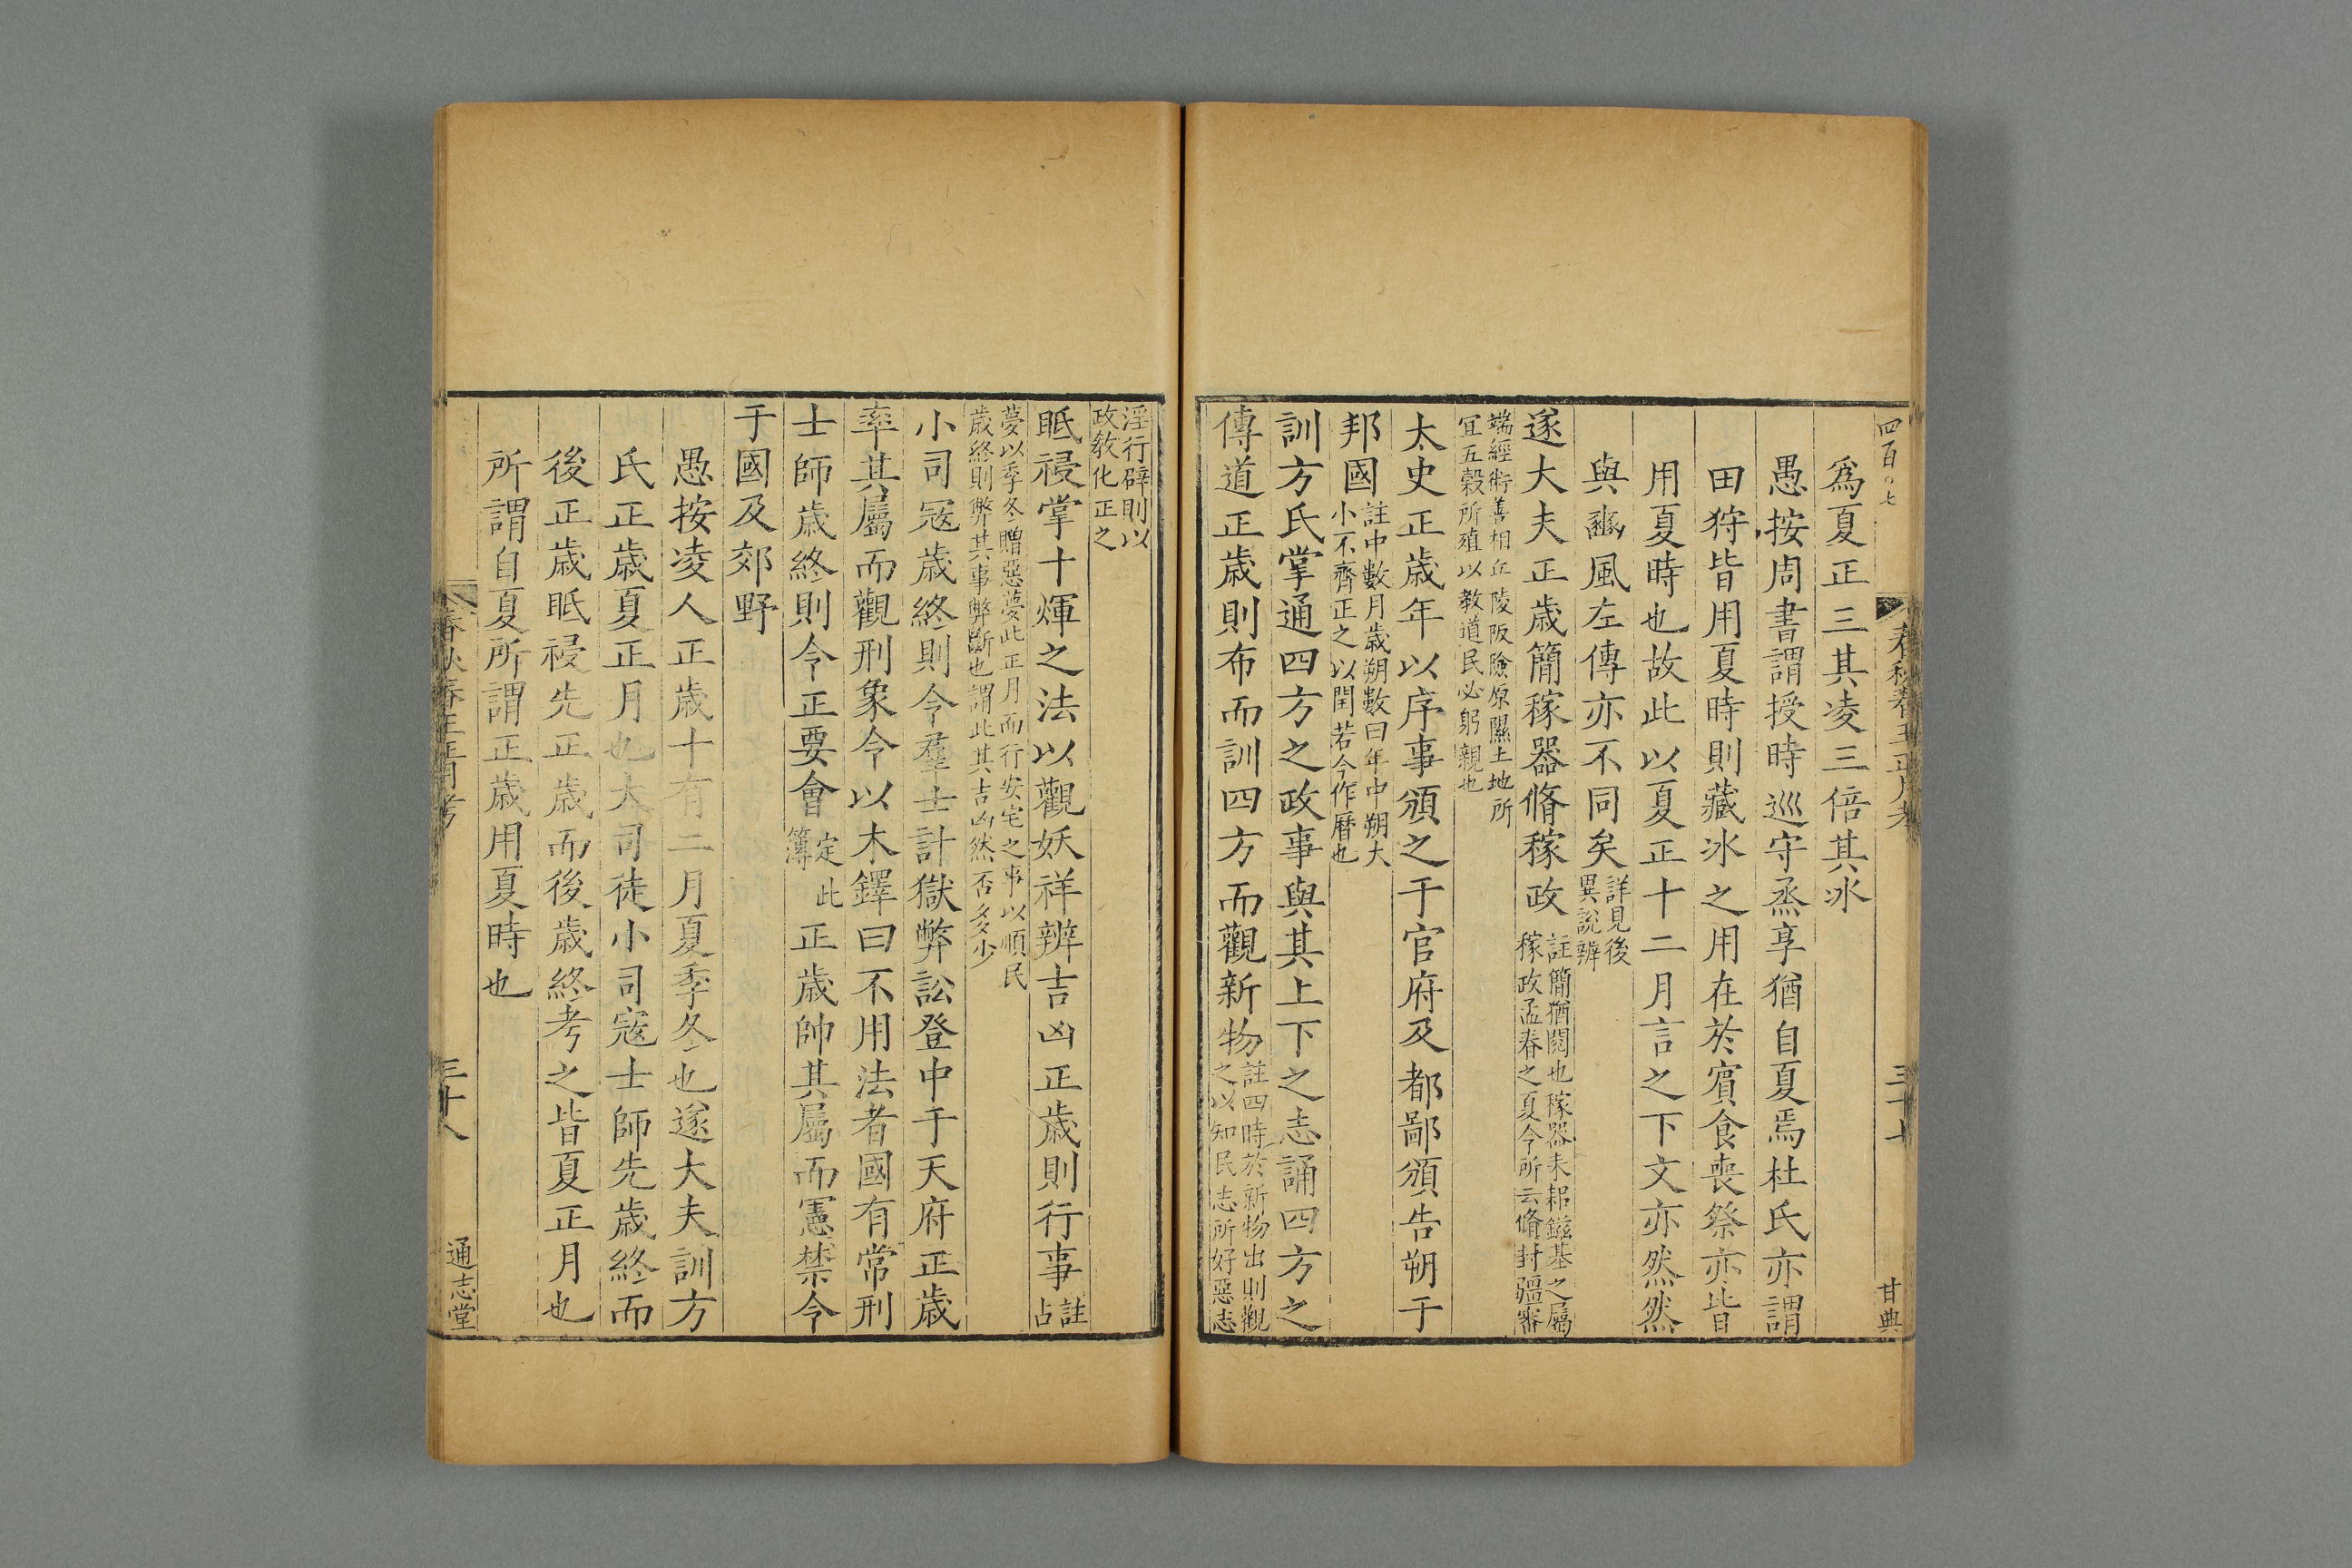 四百〇七
春秋春王正月考
三十七
甘典
爲夏正三其凌三倍其冰
愚按周書謂授時巡守烝享猶自夏焉杜氏亦謂
田狩皆用夏時則藏冰之用在於賓食喪祭亦皆
用夏時也故此以夏正十二月言之下文亦然然
與豳風左傳亦不同矣詳見後
異說辨
遂大夫正歲簡稼器脩稼政註簡猶閱也稼器耒耜鎡基之屬
稼政孟春之夏令所云脩封疆審
端經術善相丘陵阪險原隰土地所
宜五穀所殖以教道民必躬親也
太史正歲年以序事頒之于官府及都鄙頒告朔于
邦國註中數月歲朔數曰年中朔大
小不齊正之以閏若今作曆也
訓方氏掌通四方之政事與其上下之志誦四方之
傳道正歲則布而訓四方而觀新物註四時於新物出則觀
之以知民志所好惡志
淫行辟則以
政敎化正之
眡祲掌十煇之法以觀妖祥辨吉凶正歲則行事註
占
夢以季冬贈惡夢此正月而行安宅之事以順民
歲終則弊其事弊斷也謂此其吉凶然否多少
小司寇歲終則令羣士計獄弊訟登中于天府正歲
率其屬而觀刑象令以木鐸曰不用法者國有常刑
士師歲終則令正要會定此
簿
正歲帥其屬而憲禁令
于國及郊野
愚按凌人正歲十有二月夏季冬也遂大夫訓方
氏正歲夏正月也大司徒小司寇士師先歲終而
後正歲眡祲先正歲而後歲終考之皆夏正月也
所謂自夏所謂正歲用夏時也
春秋春王正月考
三十八
通志堂